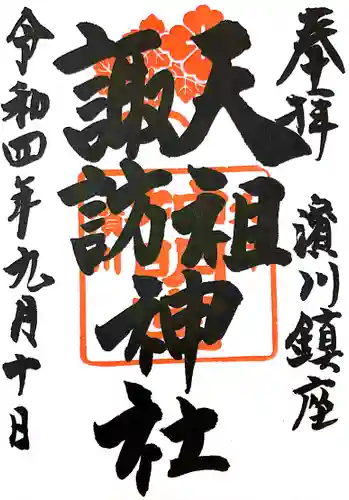 奉拝
濱川鎮座
天祖
諏訪
神社
令和四年九月十日